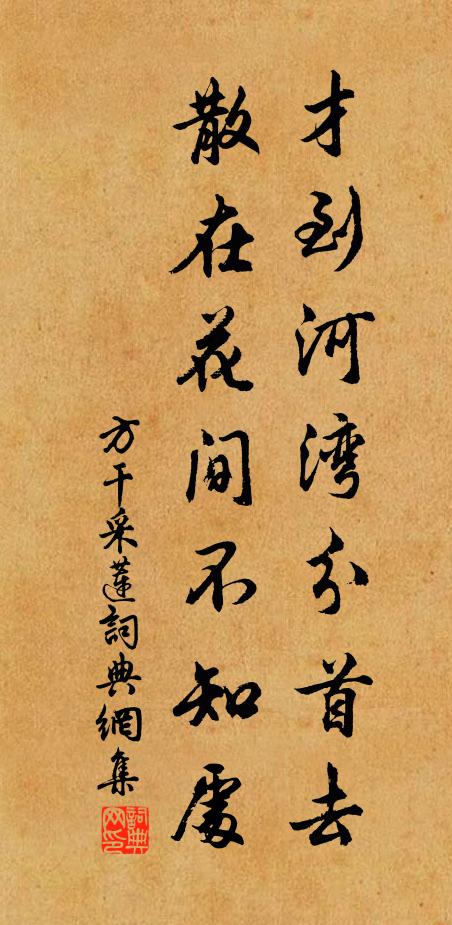 才到河湾分首去
散在花间不知處
方干采蓮詞典網集
詞典网印